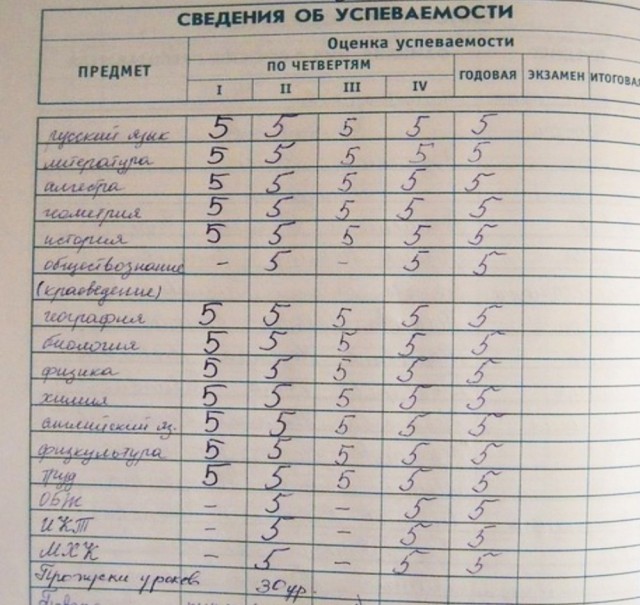 СВЕДЕНИЯ ОБ УСПЕВАЕМОСТИ
Оценка успеваемости
ПРЕДМЕТ ПО ЧЕТВЕРТЯМ ГОДОВАЯ ЭКЗАМЕН ИТОГОВАЯ
I II III IV
русский язык 5 5 5 5 5
литература 5 5 5 5 5
алгебра 5 5 5 5 5
геометрия 5 5 5 5 5
история 5 5 5 5 5
обществознание - 5 - 5 5
(краеведение)
география 5 5 5 5 5
биология 5 5 5 5 5
физика 5 5 5 5 5
химия 5 5 5 5 5
английский яз. 5 5 5 5 5
физкультура 5 5 5 5 5
труд 5 5 5 5 5
ОБЖ - 5 - 5 5
ИКТ - 5 - 5 5
МХК - 5 - 5 5
Пропуски уроков 30 ур.